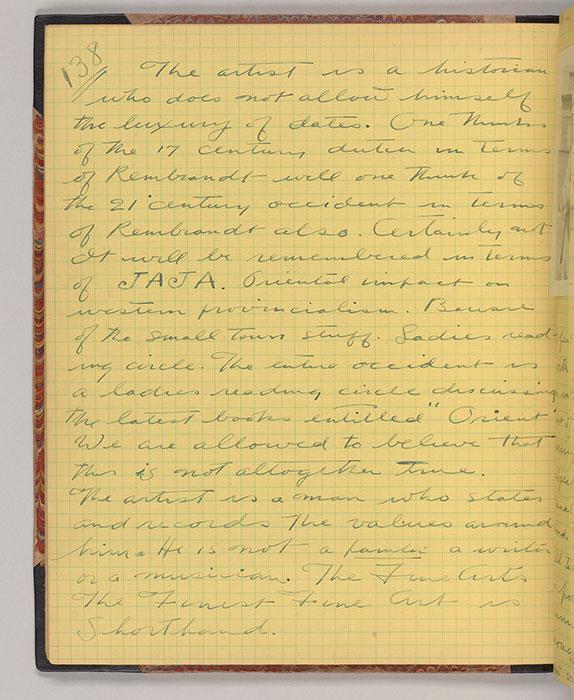 138
The artist is a historian
who does not allow himself
the luxury of dates. One thinks
of the 17 century dutch in terms
of Rembrandt will one think of
the 21 century occident in terms
of Rembrandt also. Certainly not
It will be remembered in terms
of JAJA. Oriental impact on
western provincialism. Beware
of the small town stuff. Ladies read-
ing circle. The entire occident is
a ladies reading circle discussing
the latest books entitled "Orient"
We are allowed to believe that
this is not altogether true.
The artist is a man who states
and records the values around
him. He is not a painter a writer
or a musician. The Fine Arts
The Finest Fine Art is
Shorthand.